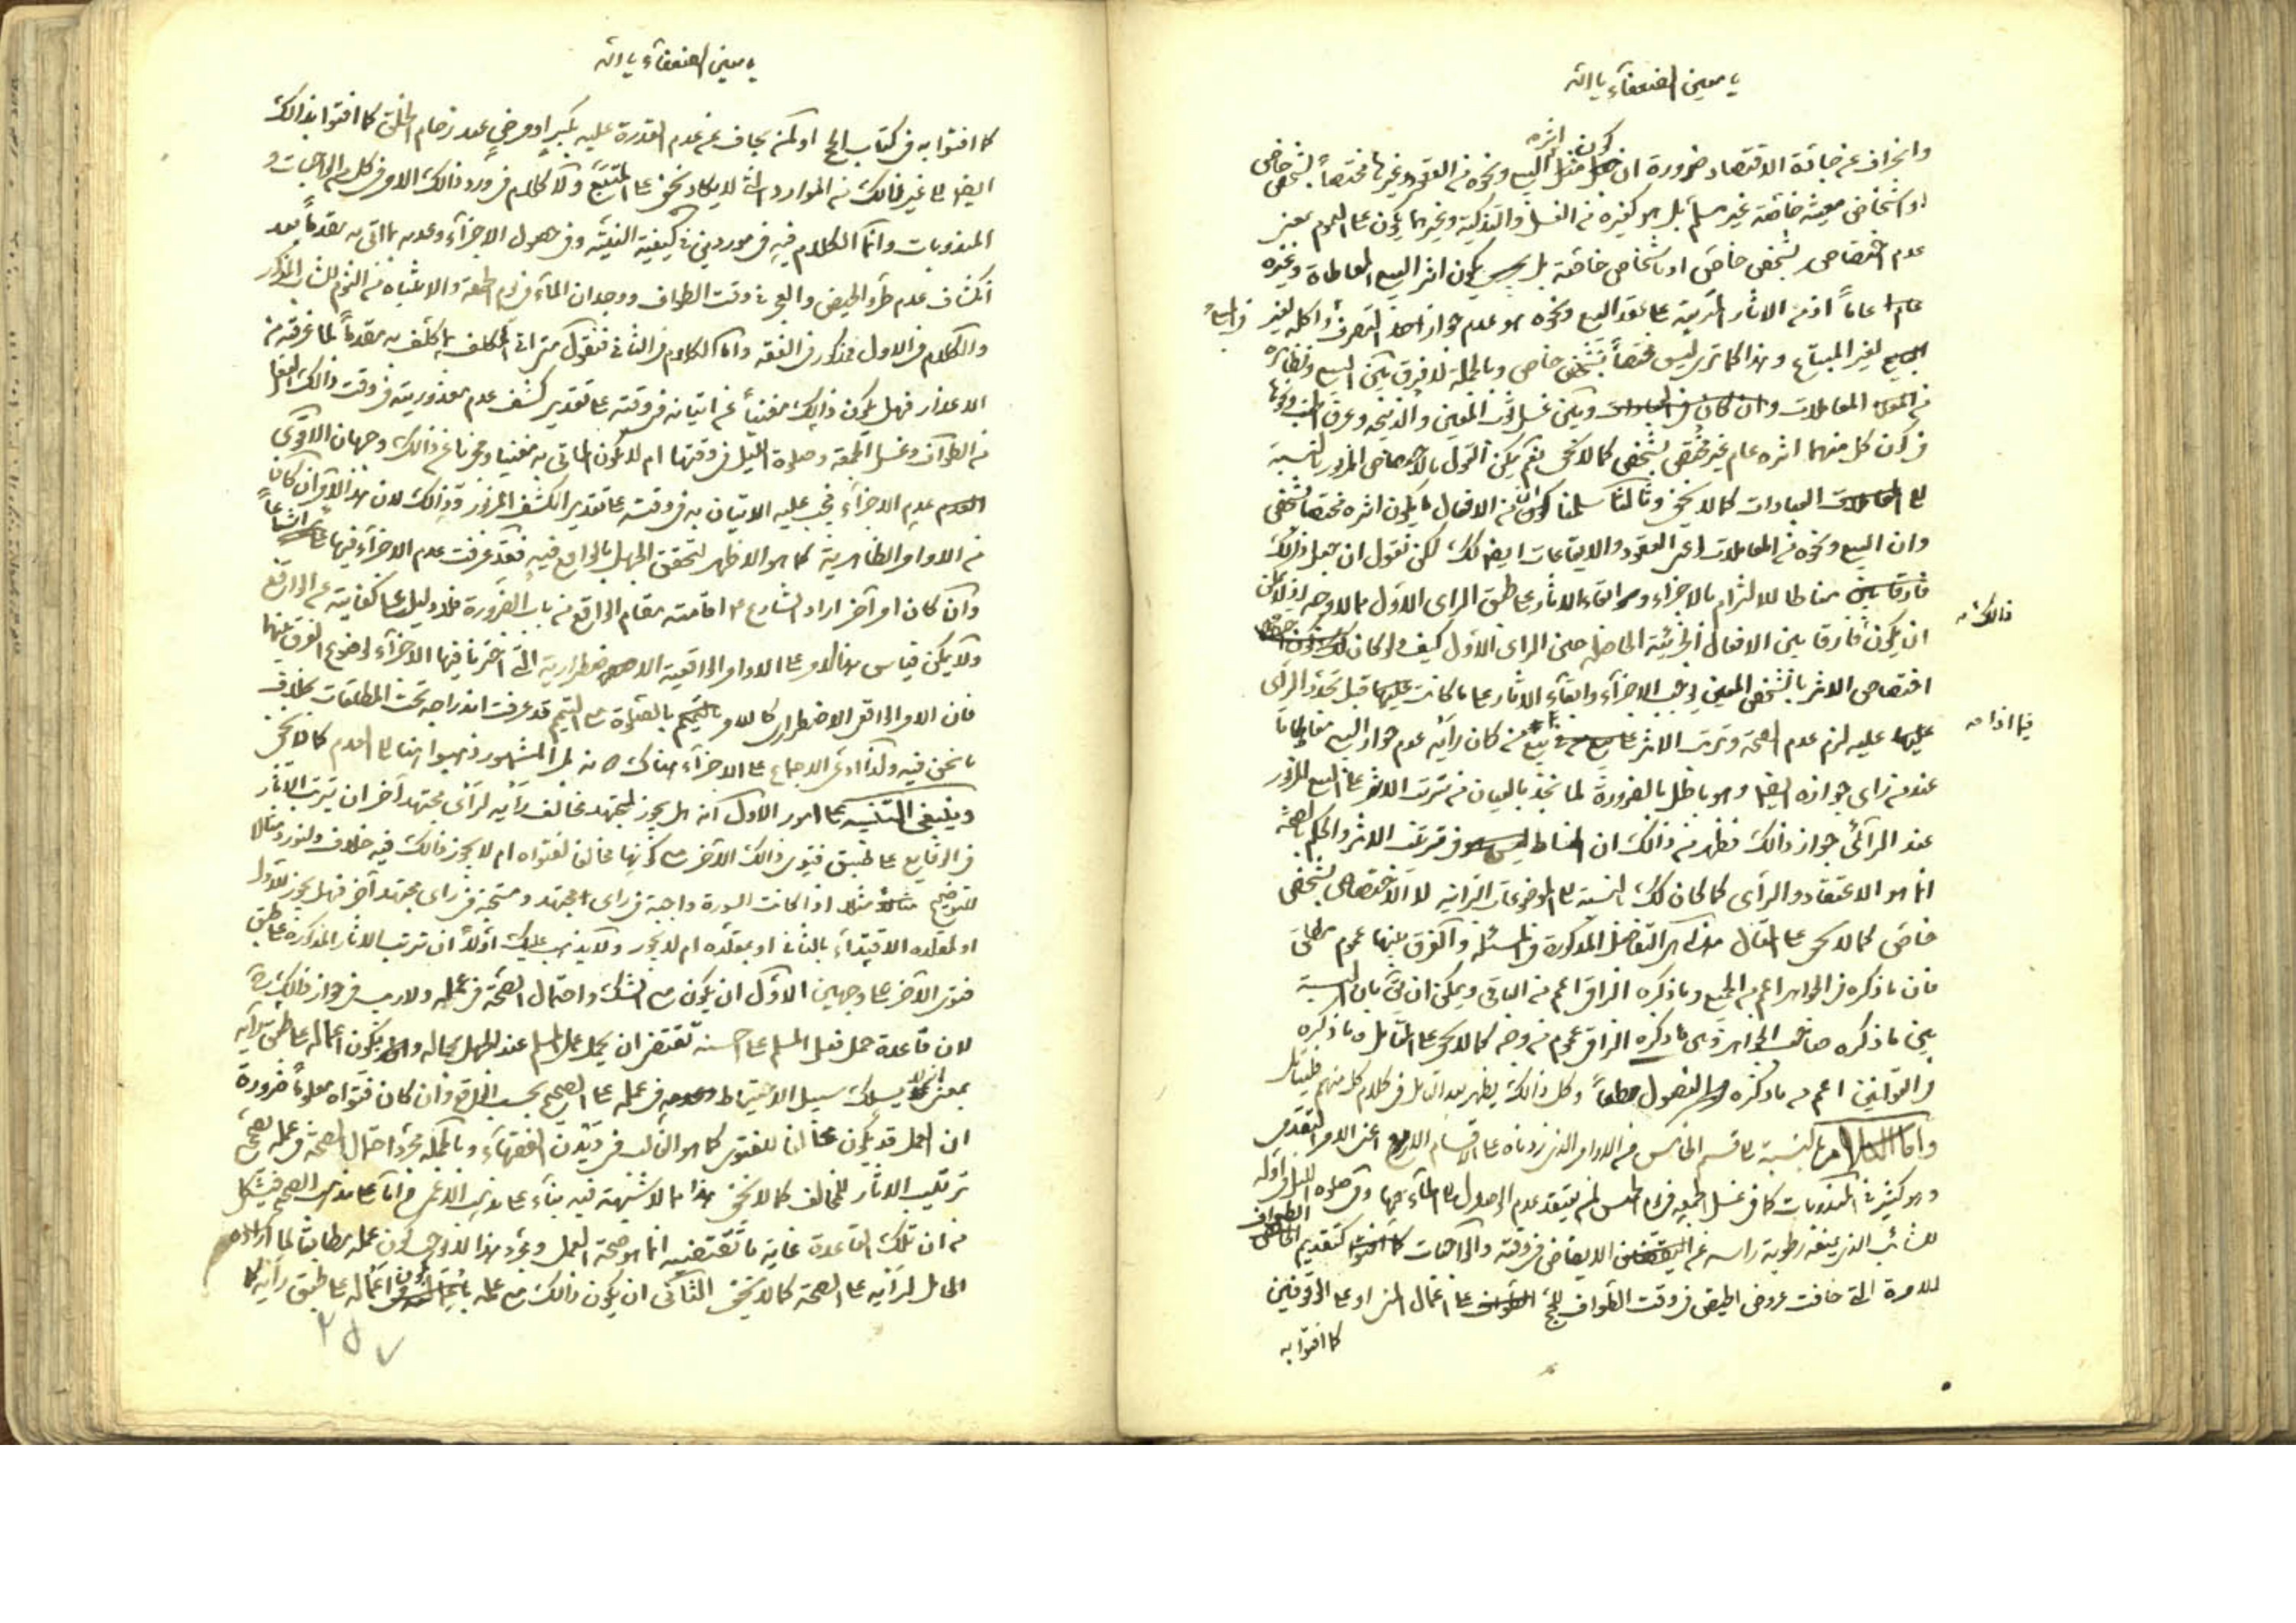 يا معين الضعفآء يا الله
وانحراف عن جادة الاقتصاد ضرورة ان كون اثره مثل البيع ونحوه من العقود وغيرها مختصاً بشخص خاص
او اشخاص معينة خاصة غير مسلم بل هو كغيره من الغسل والتذكية وغيرهما يكون على العموم بمعنى
عدم اختصاصه بشخص خاص او باشخاص خاصة بل يكون اثر البيع المعاطاة وغيره
عاماً اذ من الاثار المترتبة على عقد البيع ونحوه هو عدم جواز التصرف واكله لغير
لغير المبتاع وهذا كما ترى ليس مختصاً بشخص خاص وبالجملة لا فرق بين البيع ونظائره
من المعاملات وان كان فى العبادات وبين غسل الثوب المعين والذبيحه وعرق الجنب ونحوها
فى كون كل منهما اثره عام غير مختص بشخص كما لا يخفى نعم يمكن القول بالاختصاص المزبور بالنسبة
الى العبادات كما لا يخفى وثالثا سلمنا ان من الافعال ما يكون اثره مختصا بشخص
وان البيع ونحوه من المعاملات اعنى العقود والايقاعات ايضا كك لكن نقول ان جعل ذلك
مناطا للالتزام بالاجزاء وبقاء الاثار على طبق الراى الاول مما لا وجه له
ذالك
ان يكون فارقا بين الافعال الجزئية الحاصلة حين الراى الاول كيف ولو كان
اختصاص الاثر بالشخص المعين يوجب الاجزآء وابقآء الاثار على ما كانت عليها قبل تجدد الراى
فيما اذا
عليه لزم عدم الصحة وترتب الاثر على بيع من كان رأيه عدم جواز البيع معاطاتا
عند من راى جوازه ايضا وهو باطل بالضرورة لما نجد بالعيان من ترتب الاثر على البيع المزبور
عند الرائى جواز ذالك فظهر من ذالك ان المناط فى ترتب الاثر والحكم بالصحة
انما هو الاعتقاد والراى كما كان كك بالنسبة الى الموضوعات الخارجية لا الاختصاص بشخص
خاص كما لا يخفى على المتامل هذا هى التفاصيل المذكورة فى المسئلة والفرق بينها عموم مطلق
فان ما ذكره فى الجواهر اعم من الجميع وما ذكره النراقى اعم من الباقى ويمكن ان يق بان النسبة
بين ما ذكره صاحب الجواهر وبين ما ذكره النراقى عموم من وجه كما لا يخفى على المتامل وما ذكره
فى القوانين اعم مما ذكره فى الفصول مطلقاً وكل ذالك يظهر بعد التامل فى كلام كل منهم فليتامل
واما الكلام بالنسبة الى قسم الخامس من الاوامر الذى زدناه على الاقسام الاربع اعنى الامر التقدمى
وهو كثير فى المندوبات كما فى غسل الجمعه فى يوم الخميس لمن يعتقد عدم الوصول الى المآء فيها وفى صلوة الليل فى اوله
للشائب الذى يمنعه رطوبة راسه عن الايقاض فى وقته والواجبات كتقديم الطواف
للامرة التى خافت عروض الحيض فى وقت الطواف للحج على اعمال المنى او على الوقوفين
كما افتوا به
يا معين الضعفآء يا الله
كما افتوا به فى كتاب الحج او لمن يخاف عن عدم القدرة عليه لكبر او مرض عند زحام الخلق كما افتوا بذالك
ايضا الى غير ذالك من الموارد التى لا يكاد يخفى على المتتبع ولا كلام فى ورود ذالك الامر فى كل من الواجبات و
المندوبات وانما الكلام فيه فى موردين فى كيفية النية وفى حصول الاجزآء وعدمه بما اتى به مقدماً بعد
انكشاف عدم طرو الحيض والعجز فى وقت الطواف ووجدان المآء فى يوم الجمعة والانتباه من النوم للشاب المذكور
والكلام فى الاول مذكور فى الفقه واما الكلام فى الثانى فنقول متى اتى المكلف بما كلف به مقدماً لما عرفته من
الاعذار فهل يكون ذالك مغنياً عن اتيانه فى وقته على تقدير كشف عدم معذوريته فى وقت ذالك الفعل
من الطواف وغسل الجمعة وصلوة الليل فى وقتها ام لا يكون الماتى به مغنيا ومجزيا عن ذالك وجهان الاقوى
عدم الاجزآء فيجب عليه الاتيان به فى وقته على تقدير الكشف المزبور وذالك لان هذا الامر ان كان
من الاوامر الظاهرية كما هو الاظهر لتحقق الجهل بالواقع فيه فقد عرفت عدم الاجزآء فيها
وان كان امر آخر اراد الشارع اقامته مقام الواقع من باب الضرورة فلا دليل على كفايته عن الواقع
ولا يمكن قياس هذا الامر على الاوامر الواقعية الاضطرارية التى اخترنا فيها الاجزآء لوضوح الفرق بينهما
فان الامر الواقعى الاضطرارى كالامر بالصلوة مع التيمم قد عرفت اندراجه تحت المطلقات بخلاف
ما نحن فيه ولذا ادعى الاجماع على الاجزآء هناك بل المشهور ذهبوا هنا الى العدم كما لا يخفى
وينبغى التنبيه على امور الاول انه هل يجوز لمجتهد مخالف رأيه لرأى مجتهد آخر ان يترتب الآثار
فى الوقايع على طبق فتوى ذالك الآخر مع كونها مخالفا لفتواه ام لا يجوز ذالك فيه خلاف ولنورد مثالا
للتوضيح مثلا اذا كانت السورة واجبة فى راى مجتهد ومستحبة فى راى مجتهد آخر فهل يجوز للاول
او لمقلده الاقتدآء بالثانى او بمقلده ام لا يجوز ولا يذهب عليك اولاً ان ترتب الاثار المذكورة على طبق
فتوى الآخر على وجهين الاول ان يكون مع الشك واحتمال الصحة فى عمله ولا ريب فى جواز ذالك
لان قاعدة حمل فعل المسلم على احسنه تقتضى ان يحمل عمل المسلم عند الجهل بحاله يكون اعماله على طبق رأيه
بمعنى انه يسلك سبيل الاحتياط فى عمله على الصحيح بحسب الواقع وان كان فتواه معلوماً ضرورة
ان العمل قد يكون مخالفا للفتوى كما هو الغالب فى ديدن الفقهآء وبالجملة مجرد احتمال الصحة فى عمله يصحح
ترتيب الاثار للمخالف كما لا يخفى هذا مما لا شبهة فيه بناء على مذهب الاعمى واما على مذهب الصحيحى فيشكل
من ان تلك القاعدة غاية ما تقتضيه انما هو صحة العمل ومجرد هذا لا يوجب كون عمله مطابقا لما اراده
الحامل لرأيه على الصحة كما لا يخفى الثانى ان يكون ذالك مع علمه بكون اعماله على طبق رأيه كما